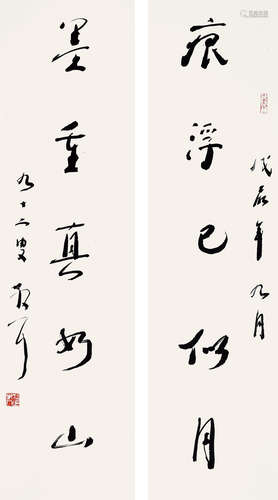 戊辰年九月
痕浮已似月
墨重真如山
九十二叟散耳